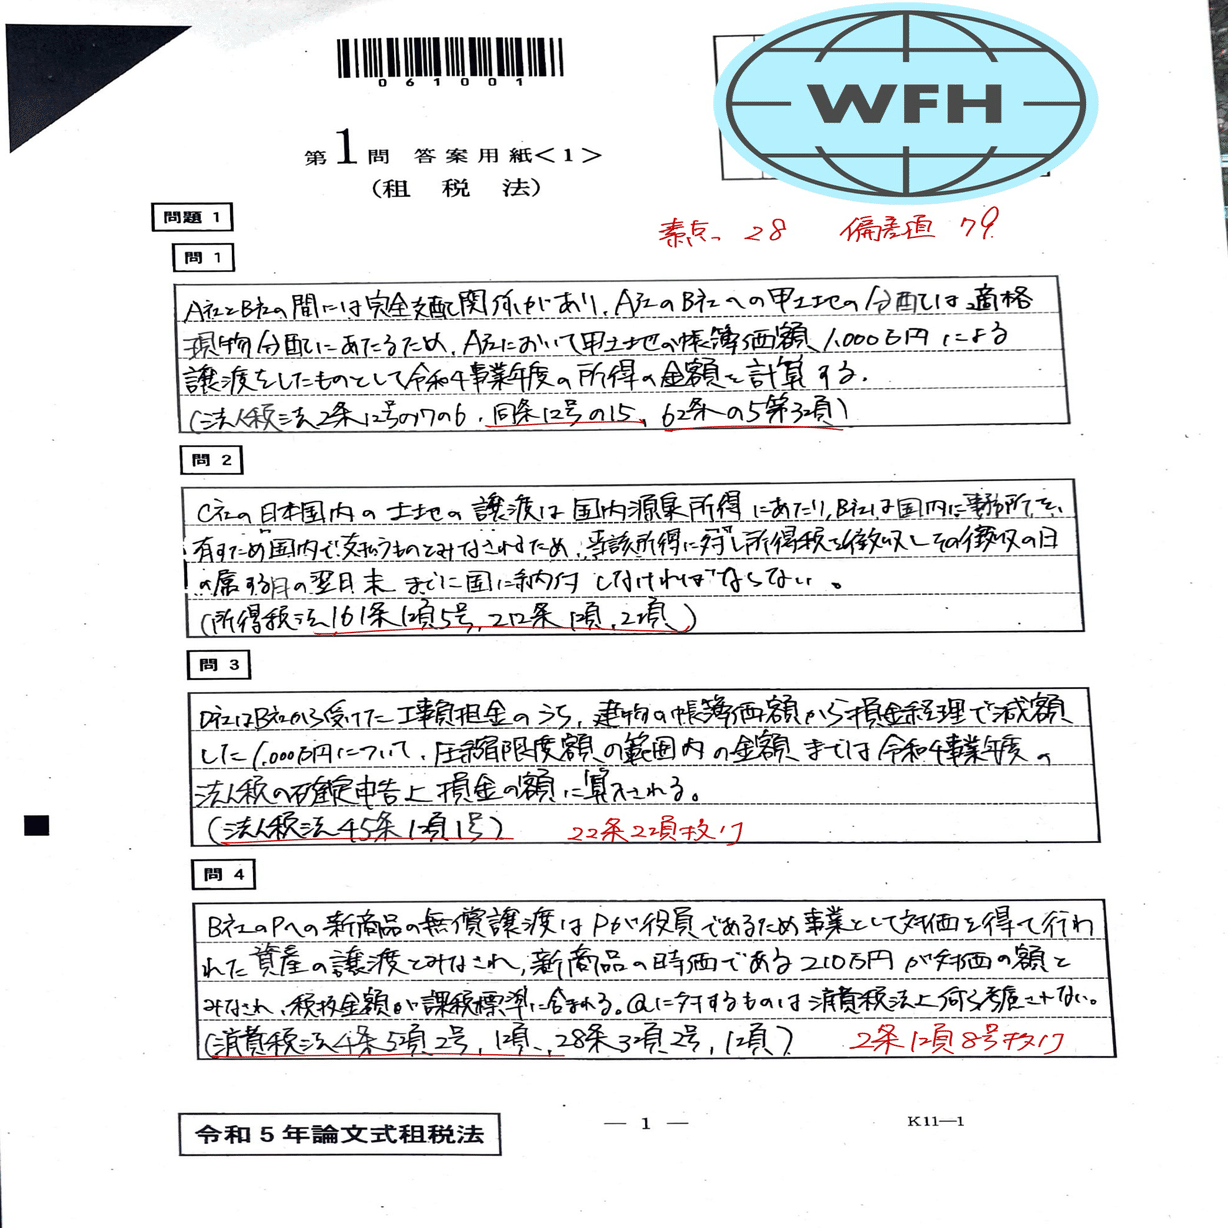 061001
WFH
第1問 答案用紙<1>
(租 税 法)
問題 1
素点 28 偏差値 79
問 1
A社とB社の間には完全支配関係があり、A社のB社への甲土地の分配は適格
現物分配にあたるため、A社において甲土地の帳簿価額1,000万円による
譲渡をしたものとして令和4事業年度の所得の金額を計算する。
(法人税法2条12号の7の6、同条12号の15、62条の5第3項)
問 2
C社の日本国内の土地の譲渡は国内源泉所得にあたり、B社は国内に事務所を
有すため国内で支払うものとみなされるため、当該所得に対し所得税を徴収しその徴収の日
の属する月の翌月末までに国に納付しなければならない。
(所得税法161条1項5号, 212条1項, 2項)
問 3
D社はB社から受けた工事負担金のうち、建物の帳簿価額から損金経理で減額
した1,000万円について、圧縮限度額の範囲内の金額までは令和4事業年度の
法人税の確定申告上損金の額に算入される。
(法人税法45条1項1号)
22条2項抜け
問 4
B社のPへの新商品の無償譲渡はPが役員であるため事業として対価を得て行わ
れた資産の譲渡とみなされ、新商品の時価である210万円が対価の額と
みなされ、税抜金額が課税標準に含まれる。Qに対するものは消費税法上何ら考慮されない。
(消費税法4条5項2号, 1項, 28条3項2号, 1項)
2条1項8号抜け
令和5年論文式租税法
— 1 —
K11—1